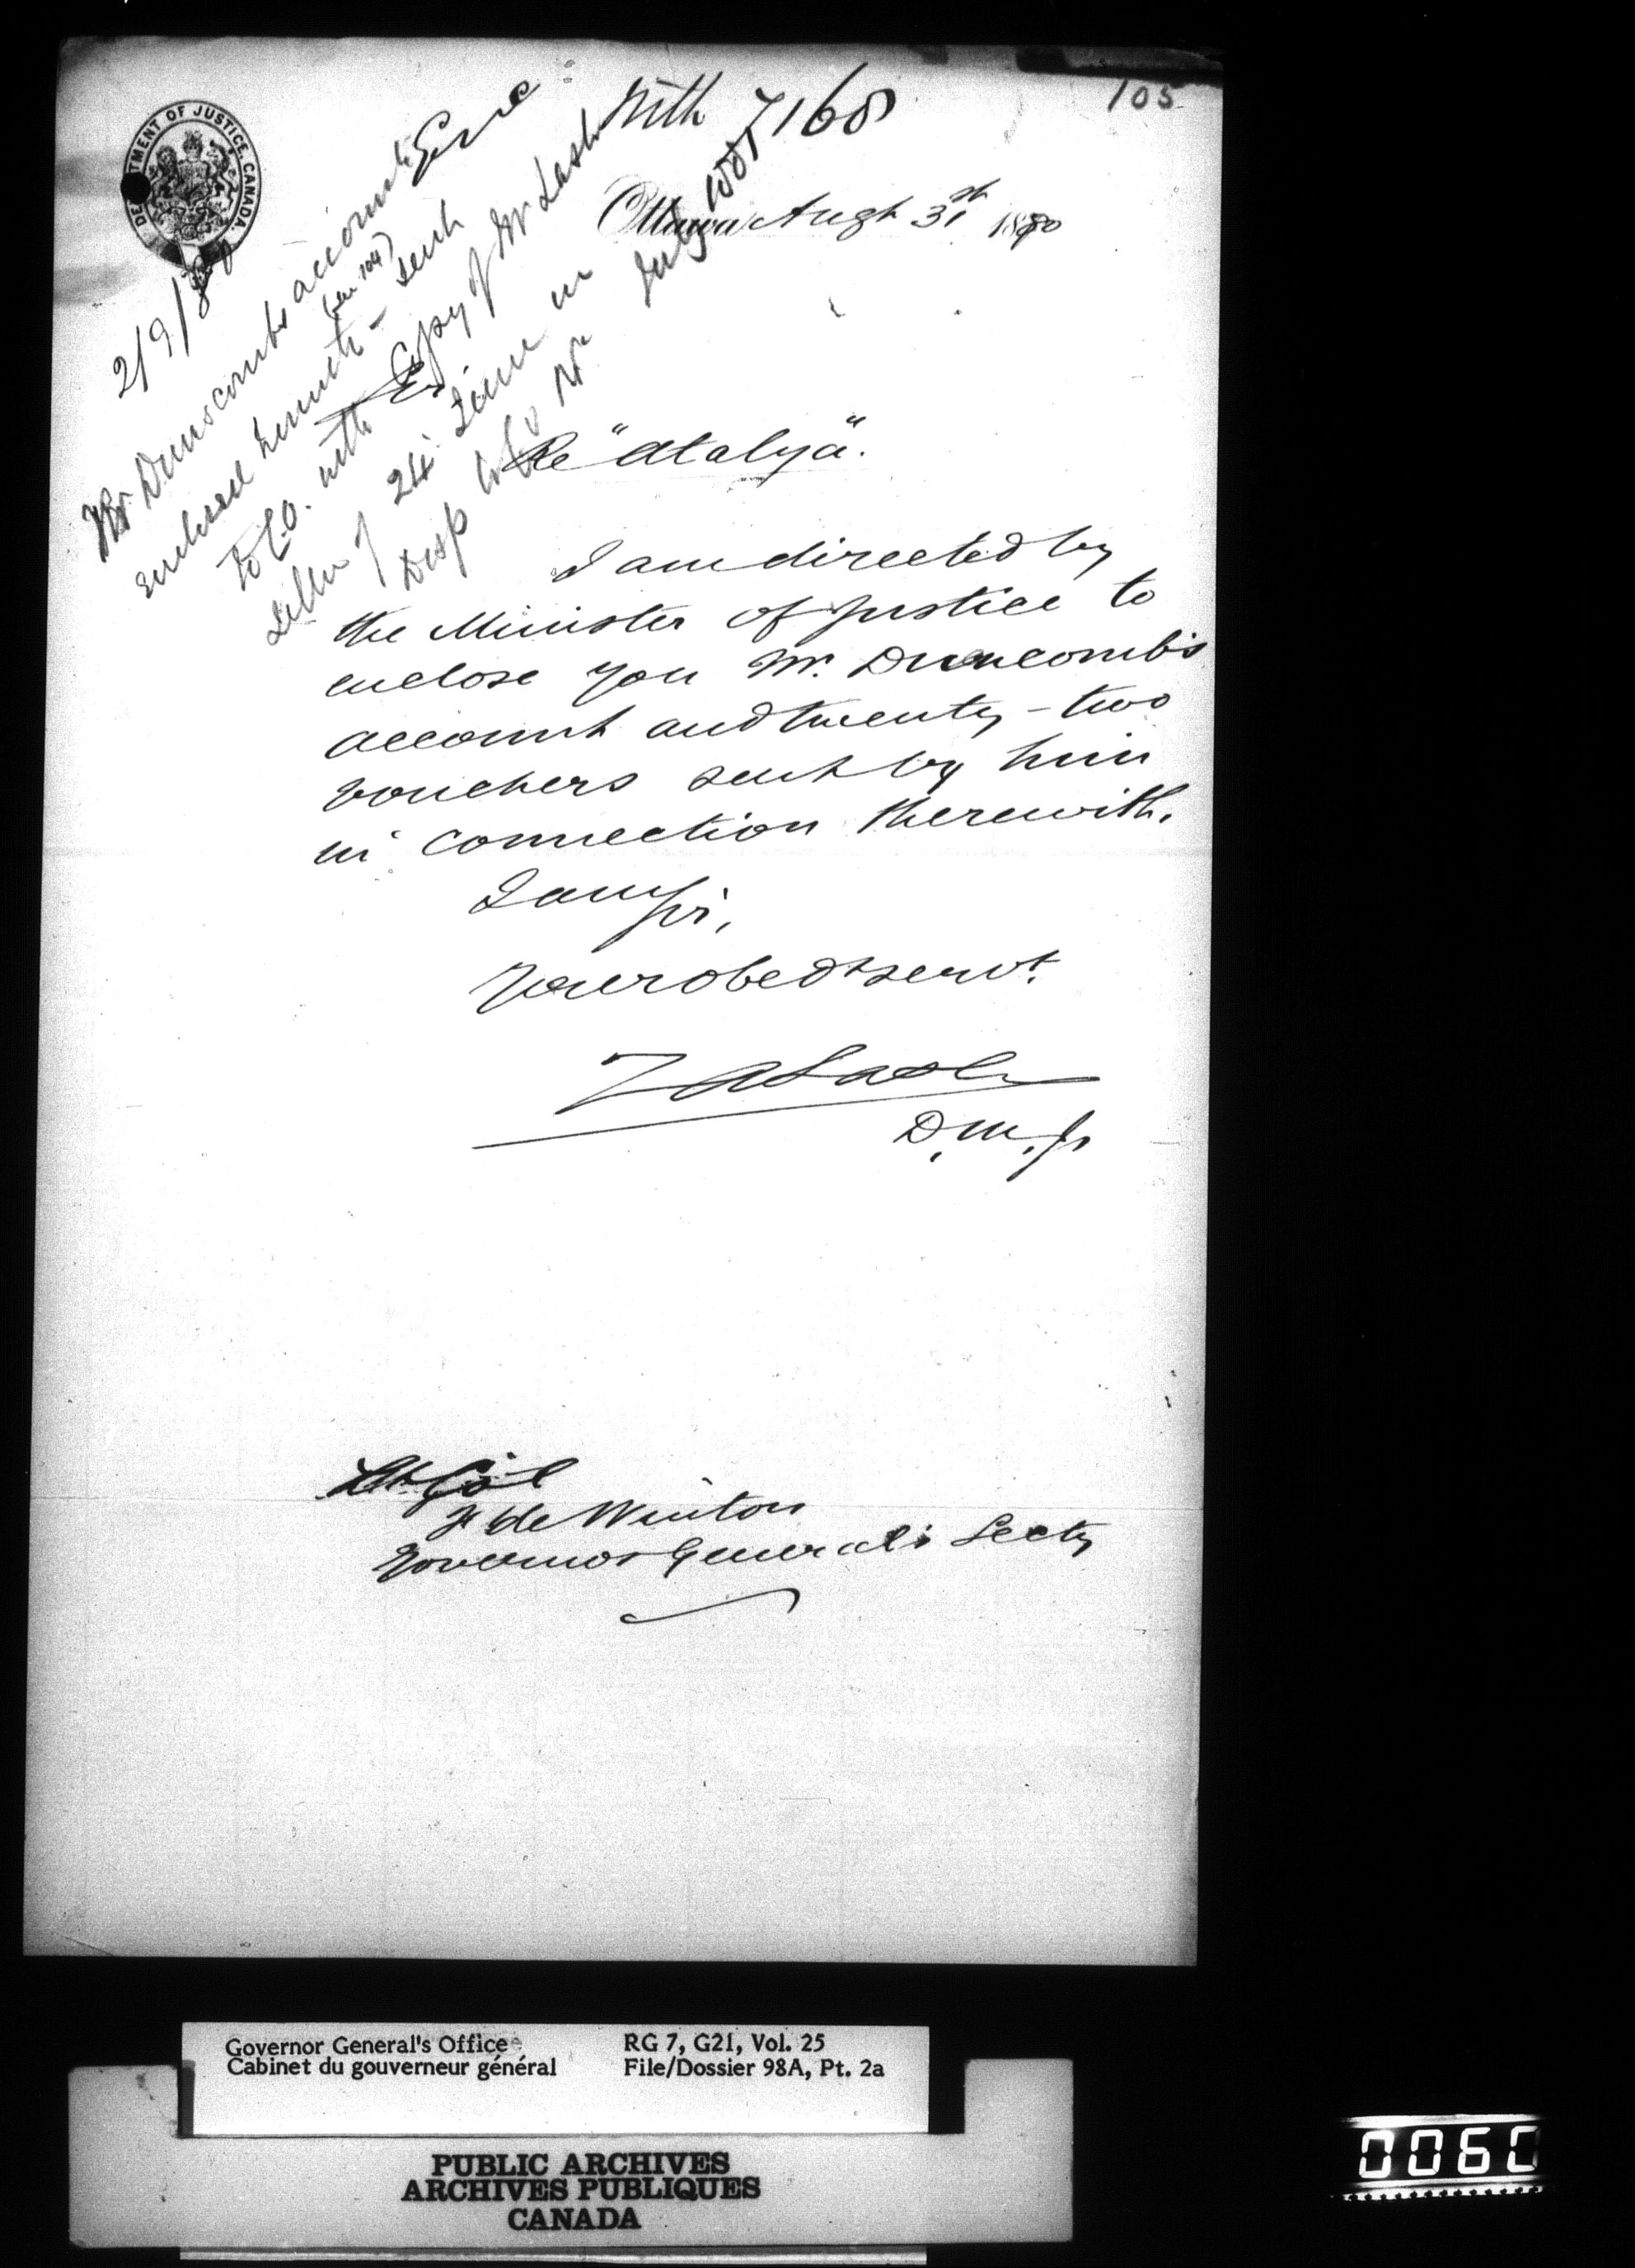 105
With 7168
DEPARTMENT OF JUSTICE, CANADA.
Ottawa Augt 31st 1880
2/9/80
Mr Dunscombs account
(see 104)
enclosed herewith - sent
to C.O. with Copy of Mr Lash
Letter of 24. June in
Desp to C.O. No
Sir
Re "Atalya".
I am directed by
the Minister of Justice to
enclose you Mr. Dunscomb's
account and twenty-two
vouchers sent by him
in connection therewith.
I am Sir,
Your obedt servt.
Z A Lash
D.M.J.
Lt. Col
F de Winton
Governor General's Secty
Governor General's Office
Cabinet du gouverneur général
RG 7, G21, Vol. 25
File/Dossier 98A, Pt. 2a
PUBLIC ARCHIVES
ARCHIVES PUBLIQUES
CANADA
0060